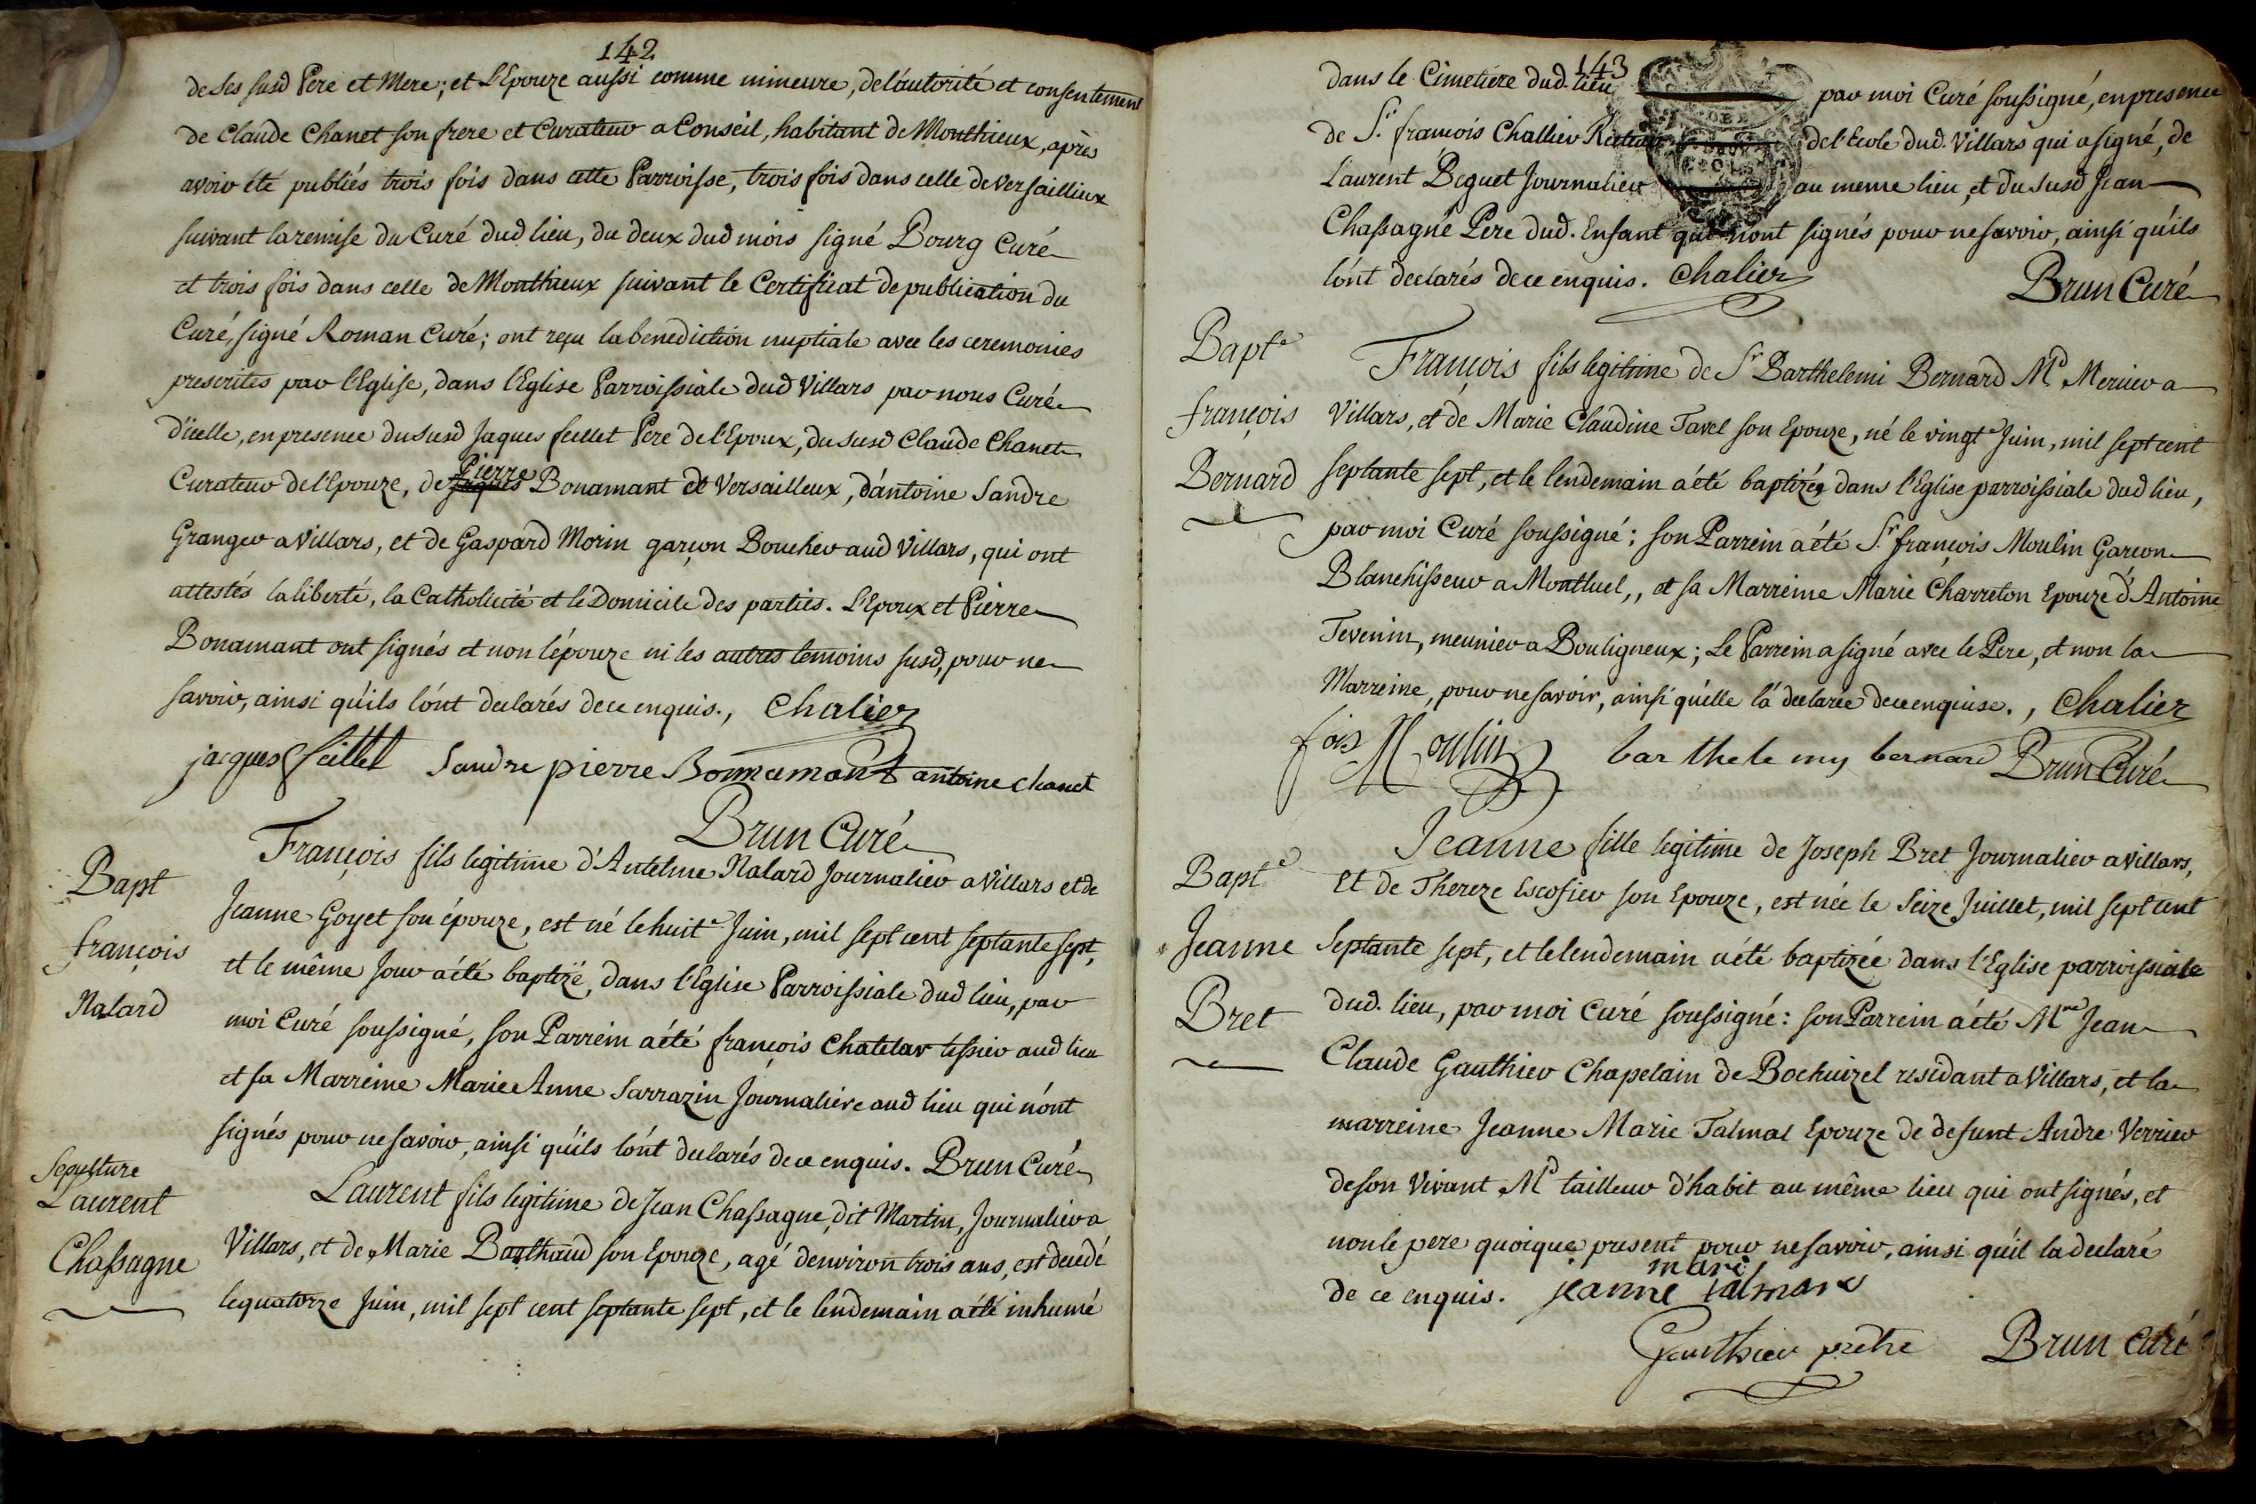 142
de ses susd Pere et Mere; et L'Epouze aussi comme mineure, de l'autorité et consentement
de Claude Chanet son frere et Curateur a Conseil, habitant de Monthieux, après
avoir été publiés trois fois dans cette Parroisse, trois fois dans celle de Versailliux
suivant la remise du Curé dud lieu, du deux dud mois signé Bourg Curé
et trois fois dans celle de Monthieux suivant le Certificat de publication du
Curé, signé Roman Curé; ont reçu la benediction nuptiale avec les ceremonies
prescrites par l'Eglise, dans l'Eglise Parroissiale dud Villars par nous Curé
d'icelle, en presence du susd Jaques feillet Pere de l'Epoux, du susd Claude Chanet
Curateur de l'Epouze, de Pierre Bonamant de Versailleux, d'antoine Sandre
Granger a Villars, et de Gaspard Morin garçon Boucher aud Villars, qui ont
attestés la liberté, la Catholicité et le Domicile des parties. L'Epoux et Pierre
Bonamant ont signés et non l'épouze ni les autres temoins susd, pour ne
savoir, ainsi qu'ils l'ont declarés de ce enquis., Chalier
jacques feillet Sandre pierre Bonnamant antoine chanet
Brun Curé
Bapt
françois
Nalard
François fils legitime d'Antelme Nalard Journalier a Villars et de
Jeanne Goyet son épouze, est né le huit Juin, mil sept cent septante sept,
et le même Jour a été baptizé, dans l'Eglise Parroissiale dud lieu, par
moi Curé soussigné, son Parrein a été françois Chatelar tessier aud lieu
et sa Marreine Marie Anne Sarrazin Journaliere aud lieu qui n'ont
signés pour ne savoir, ainsi qu'ils l'ont declarés de ce enquis. Brun Curé
Sepulture
Laurent
Chassagne
Laurent fils legitime de Jean Chassagne, dit Martin, Journalier a
Villars, et de Marie Bauthaud son Epouze, agé d'environ trois ans, est decedé
le quatorze Juin, mil sept cent septante sept, et le lendemain a été inhumé
143
dans le Cimetiere dud. lieu par moi Curé soussigné, en presence
de Sr. françois Challier Recteur de l'Ecole dud. Villars qui a signé, de
Laurent Beguet Journalier au meme lieu, et du susd Jean
Chassagne Pere dud. Enfant qui n'ont signés pour ne savoir, ainsi qu'ils
l'ont declarés de ce enquis. Chalier
Brun Curé
Bapte
françois
Bernard
François fils legitime de Sr Barthelemi Bernard Md Mercier a
Villars, et de Marie Claudine Tavel son Epouze, né le vingt Juin, mil sept cent
septante sept, et le lendemain a été baptizé dans l'Eglise parroissiale dud lieu,
par moi Curé soussigné: son Parrein a été Sr. françois Moulin Garçon
Blanchisseur a Montluel,, et sa Marreine Marie Charreton Epouze d'Antoine
Tevenin, meunier a Bouligneux; Le Parrein a signé avec le Pere, et non la
Marreine, pour ne savoir, ainsi qu'elle l'a declarée de ce enquise., Chalier
fois Moulin barthelemy bernard Brun Curé
Bapte
Jeanne
Bret
Jeanne fille legitime de Joseph Bret Journalier a Villars,
Et de Thereze Escofier son Epouze, est née le Seize Juillet, mil sept cent
Septante sept, et le lendemain a été baptizée dans l'Eglise parroissiale
dud. lieu, par moi Curé soussigné: son Parrein a été Mre Jean
Claude Gauthier Chapelain de Bochuizel residant a Villars, et la
marreine Jeanne Marie Talmal Epouze de defunt Andre Verrier
de son Vivant Md tailleur d'habit au même lieu qui ont signés, et
non le pere quoique present pour ne savoir, ainsi qu'il la declaré
de ce enquis. jeanne mari talmard
Gauthier prêtre Brun Curé